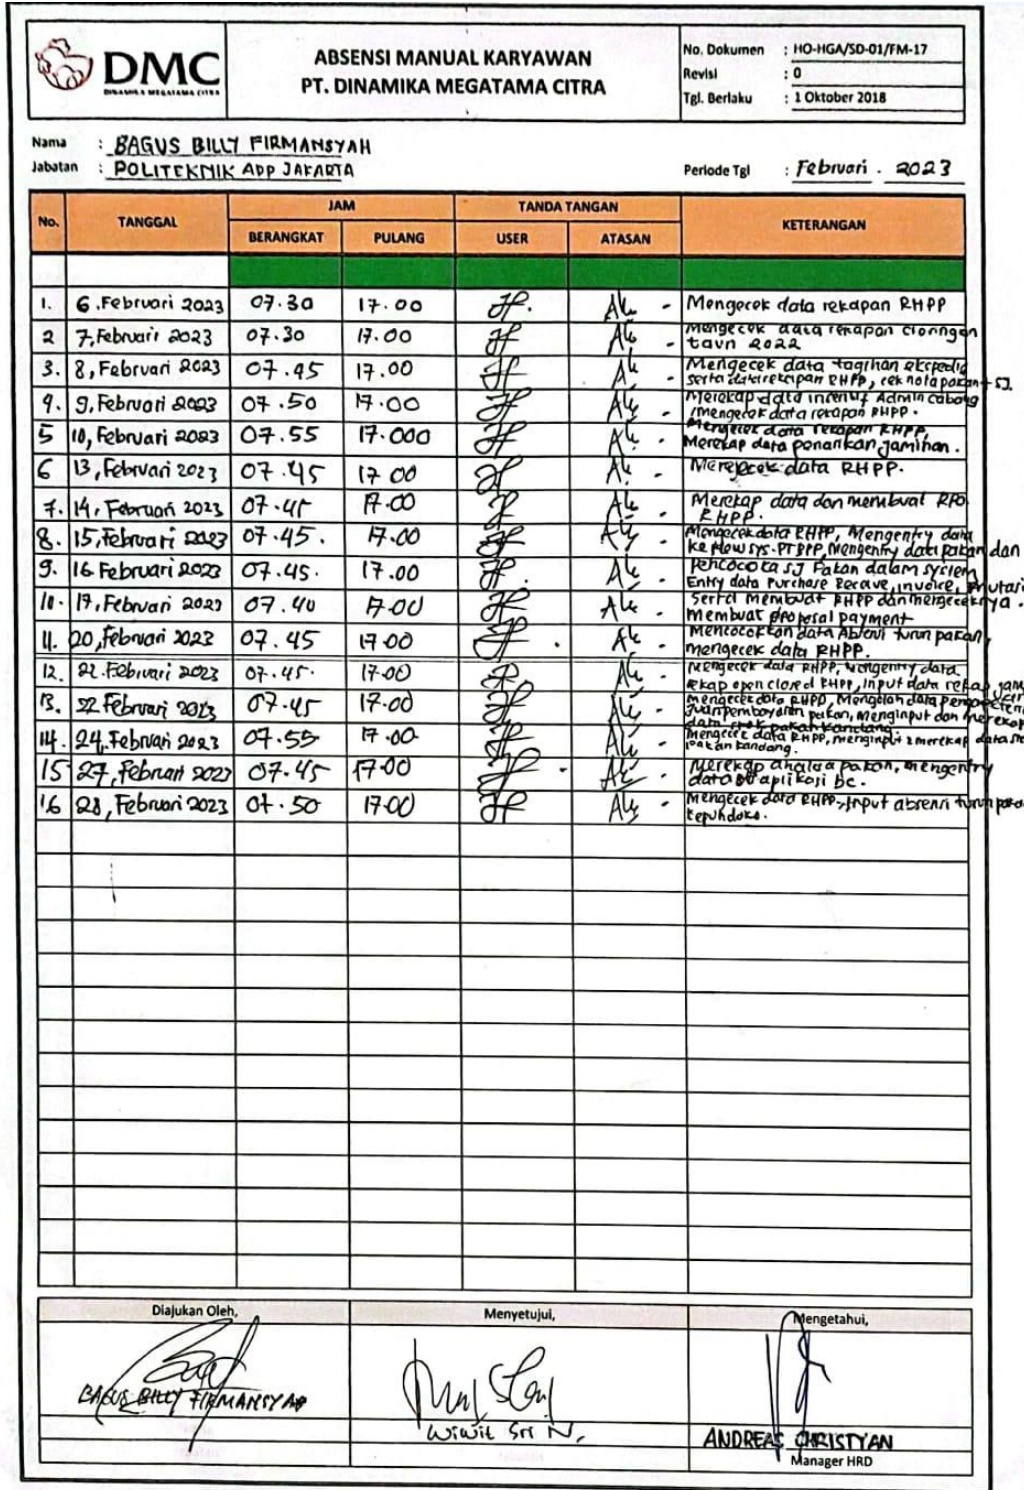 DMC
DINAMIKA MEGATAMA CITRA
ABSENSI MANUAL KARYAWAN
PT. DINAMIKA MEGATAMA CITRA
No. Dokumen : HO-HGA/SD-01/FM-17
Revisi : 0
Tgl. Berlaku : 1 Oktober 2018
Nama : BAGUS BILLY FIRMANSYAH
Jabatan : POLITEKNIK APP JAKARTA
Periode Tgl : Februari . 2023
No. TANGGAL JAM TANDA TANGAN KETERANGAN
BERANGKAT PULANG USER ATASAN
1. 6.Februari 2023 07.30 17.00 Mengecek data rekapan RHPP
2 7,Februari 2023 07.30 17.00 Mengecek data rekapan
tavn 2022
3. 8, Februari 2023 07.45 17.00 Mengecek data tagihan ekspedisi
serta data rekapan RHPP, cek nota pakan + SJ.
4. 9, Februari 2023 07.50 17.00 Merekap data insentif Admin cabang
/mengecek data rekapan RHPP.
5 10, Februari 2023 07.55 17.000 Mengecek data rekapan RHPP,
Merekap data penarikan jaminan.
6 13, Februari 2023 07.45 17 00 data RHPP.
7. 14, Februari 2023 07.45 17.00 Merekap data dan membuat
RHPP.
8. 15, Februari 2023 07.45. 17.00 Mengecek data RHPP, Mengentry data
ke sys. PT BPP, Mengentry data pakan dan
9. 16 Februari 2023 07.45. 17.00 SJ Pakan dalam system
Entry data Purchase Recave, invoice, mutasi
10. 17, Februari 2023 07.40 17.00 Serta membuat RHPP dan mengeceknya.
membuat proposal payment
11. 20, Februari 2023 07.45 17.00 Mencocokkan data turun pakan,
mengecek data RHPP.
12. 21. Februari 2023 07.45. 17.00 Mengecek data RHPP, Mengentry data
rekap open closed RHPP, input data rekap
13. 22 Februari 2023 07.45 17.00 Mengecek data RHPP,
pembayaran pakan, menginput dan merekap
data stok pakan kandang.
14. 24, Februari 2023 07.55 17.00 Mengecek data RHPP, menginput & merekap data
pakan kandang.
15 27, Februari 2023 07.45 17.00 Merekap analisa pakan, mengentry
data di aplikasi bc.
16 28, Februari 2023 07.50 17.00 Mengecek data RHPP, Input absensi turun
Diajukan Oleh, Menyetujui, Mengetahui,
BAGUS BILLY FIRMANSYAH
Wiwit Sri N.
ANDREAS CHRISTYAN
Manager HRD